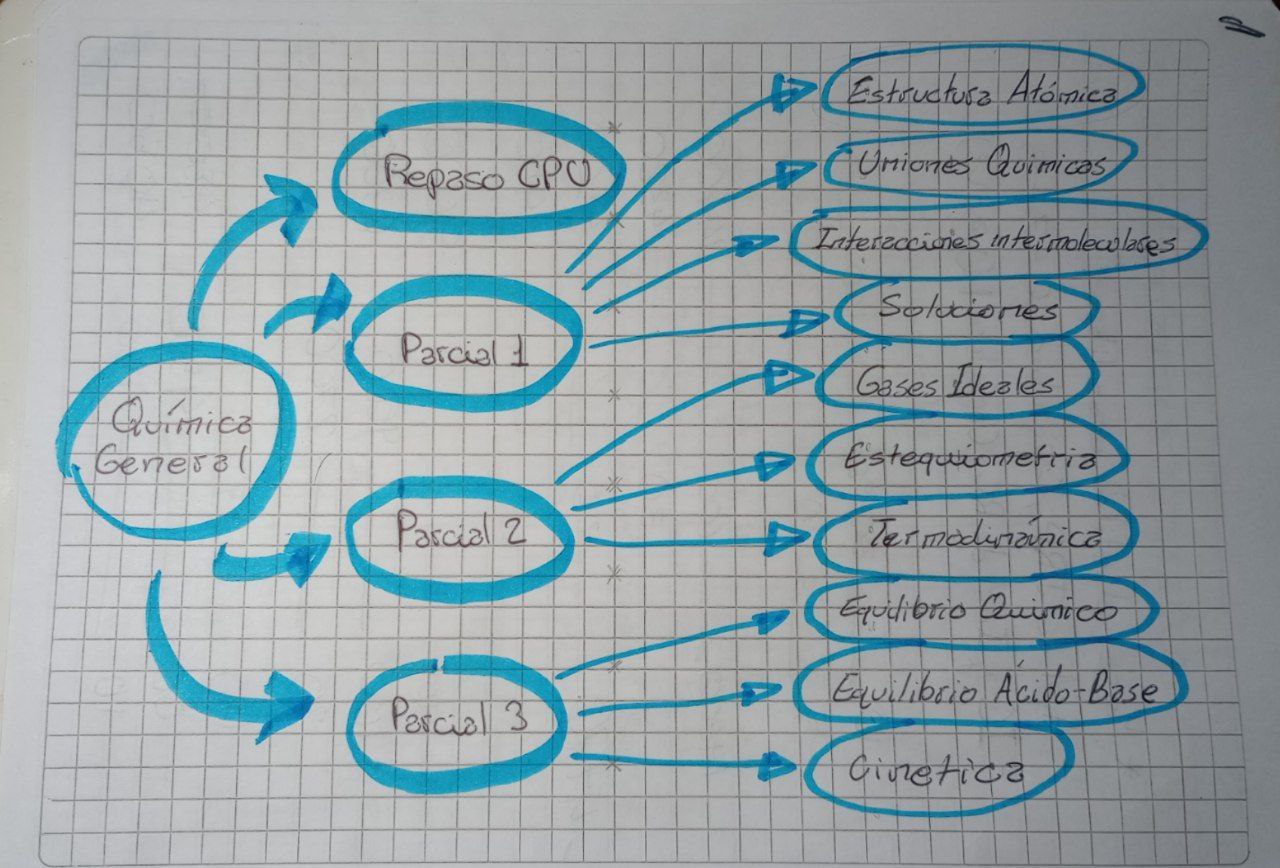 Repaso CPU
Parcial 1
Química
General
Parcial 2
Parcial 3
Estructura Atómica
Uniones Quimicas
Interacciones intermoleculares
Soluciones
Gases Ideales
Estequiometria
Termodinámica
Equilibrio Quimico
Equilibrio Ácido-Base
Cinetica